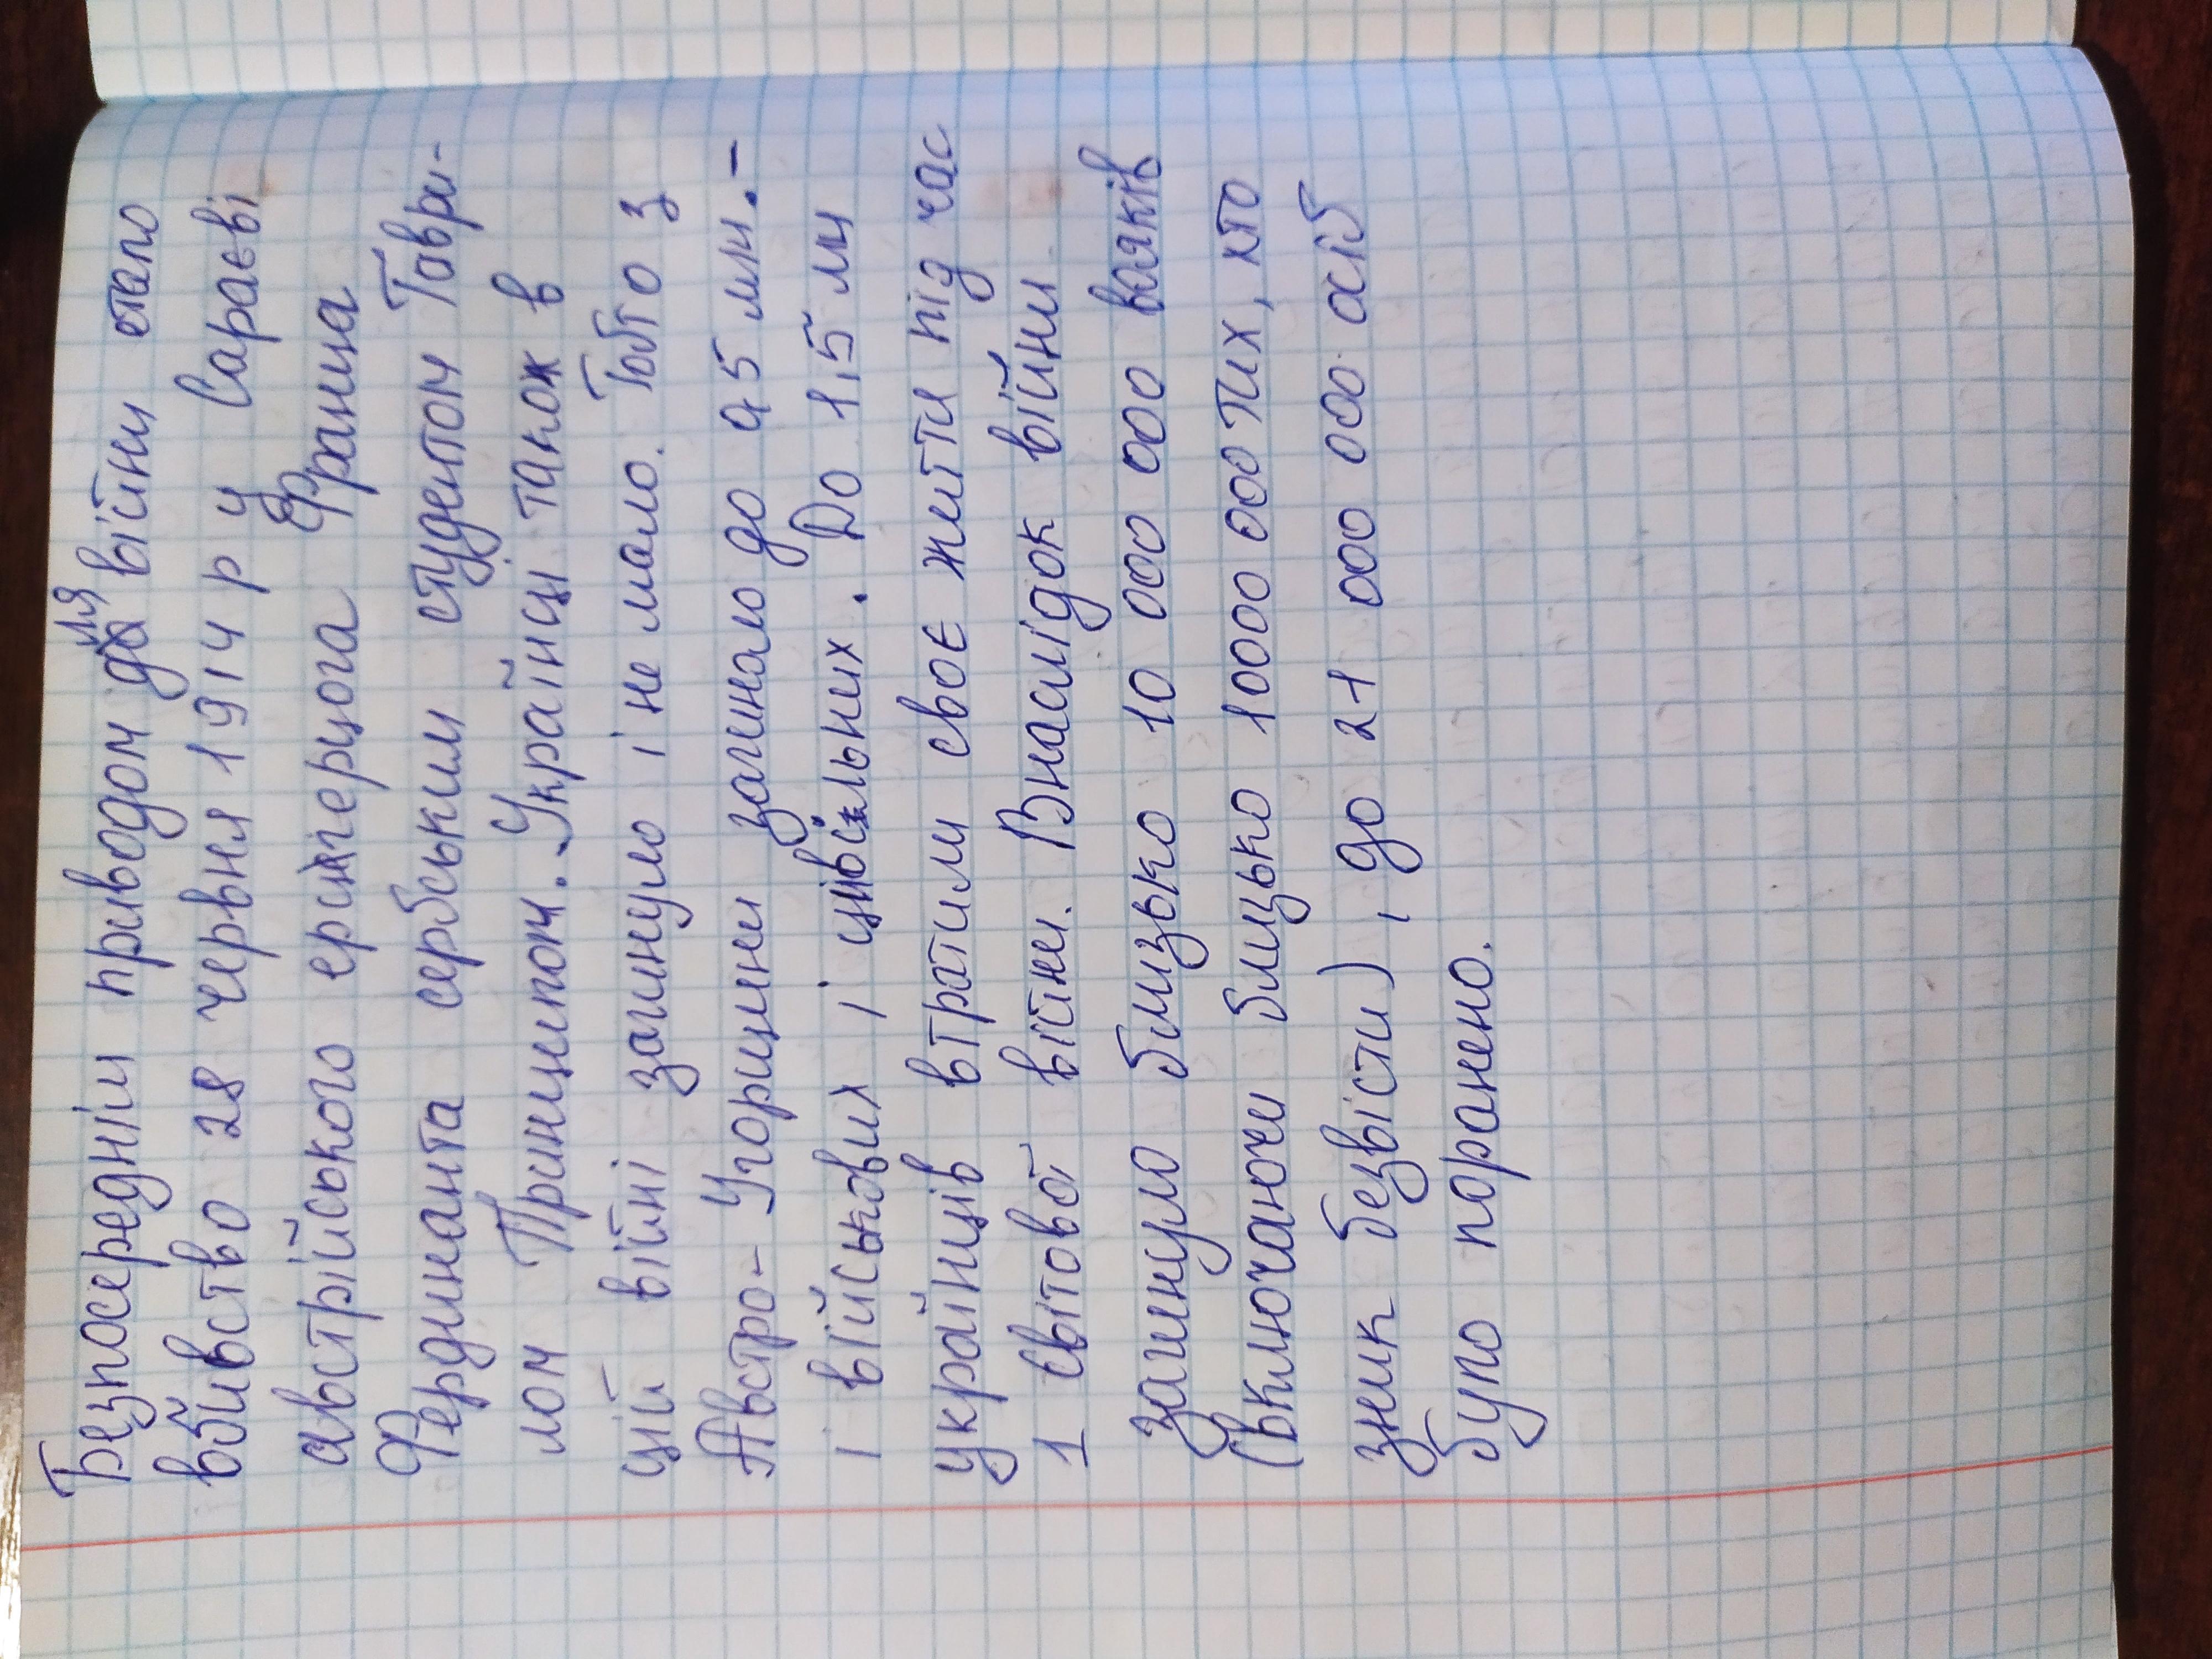 Безпосереднім приводом для війни стало
вбивство 28 червня 1914 р у Сараєві
австрійського ерцгерцога Франца
Фердинанта сербським студентом Гаври-
лом Принципом. Українці також в
цій війні загинуло і не мало. Тобто з
Австро-Угорщини загинало до 0,5 млн. -
і військових і цивільних. До 1,5 млн
українців втратили своє життя під час
1 світової війни. Внаслідок війни
загинуло близько 10 000 000 вояків
(включаючи блицько 10000 000 тих, хто
зник безвісти), до 21 000 000 осіб
було поранено.